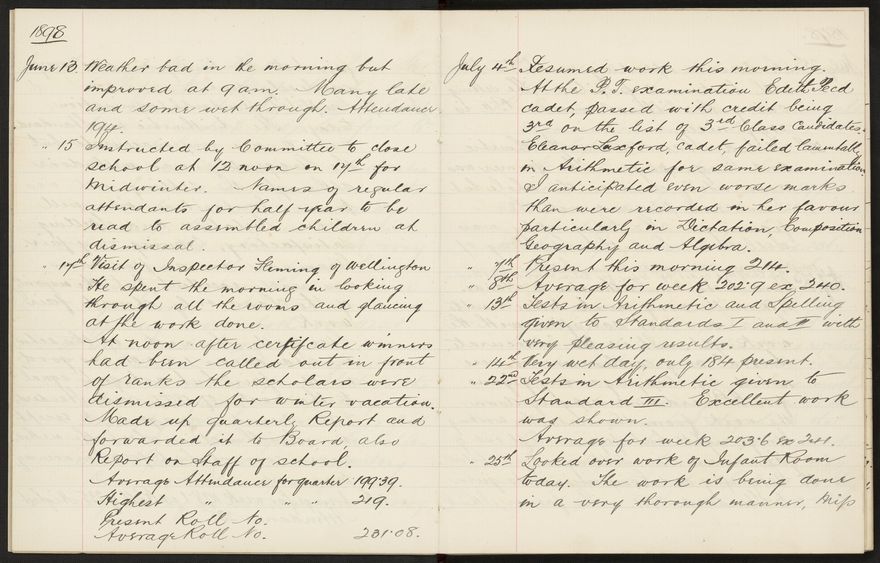 1898
June 13 Weather bad in the morning but
improved at 9 am. Many late
and some wet through. Attendance
194.
" 15 Instructed by Committee to close
school at 12 noon on 17th for
Midwinter. Names of regular
attendants for half year to be
read to assembled children at
dismissal.
" 17th Visit of Inspector Fleming of Wellington
He spent the morning in looking
through all the rooms and glancing
at the work done.
At noon after certifcate winners
had been called out in front
of ranks the scholars were
dismissed for winter vacation.
Made up quarterly Report and
forwarded it to Board, also
Report on Staff of school.
Average Attendance for quarter 199.39.
Highest " " " 219.
Present Roll No.
Average Roll No. 231.08.
July 4th Resumed work this morning.
At the P.T. examination Edith
cadet, passed with credit being
3rd on the list of 3rd Class Candidates.
Eleanor Luxford, cadet, failed lamentably
in Arithmetic for same examination.
I anticipated even worse marks
than were recorded in her favour
particularly in Dictation, Composition
Geography and Algebra.
" 7th Present this morning 214.
" 8th Average for week 202.9 ex 240.
" 13th Tests in Arithmetic and Spelling
given to Standards I and II with
very pleasing results.
" 14th Very wet day, only 184 present.
" 22nd Tests in Arithmetic given to
Standard III. Excellent work
was shown.
Average for week 203.6 ex 241.
" 25th Looked over work of Infant Room
today. The work is being done
in a very thorough manner, Miss